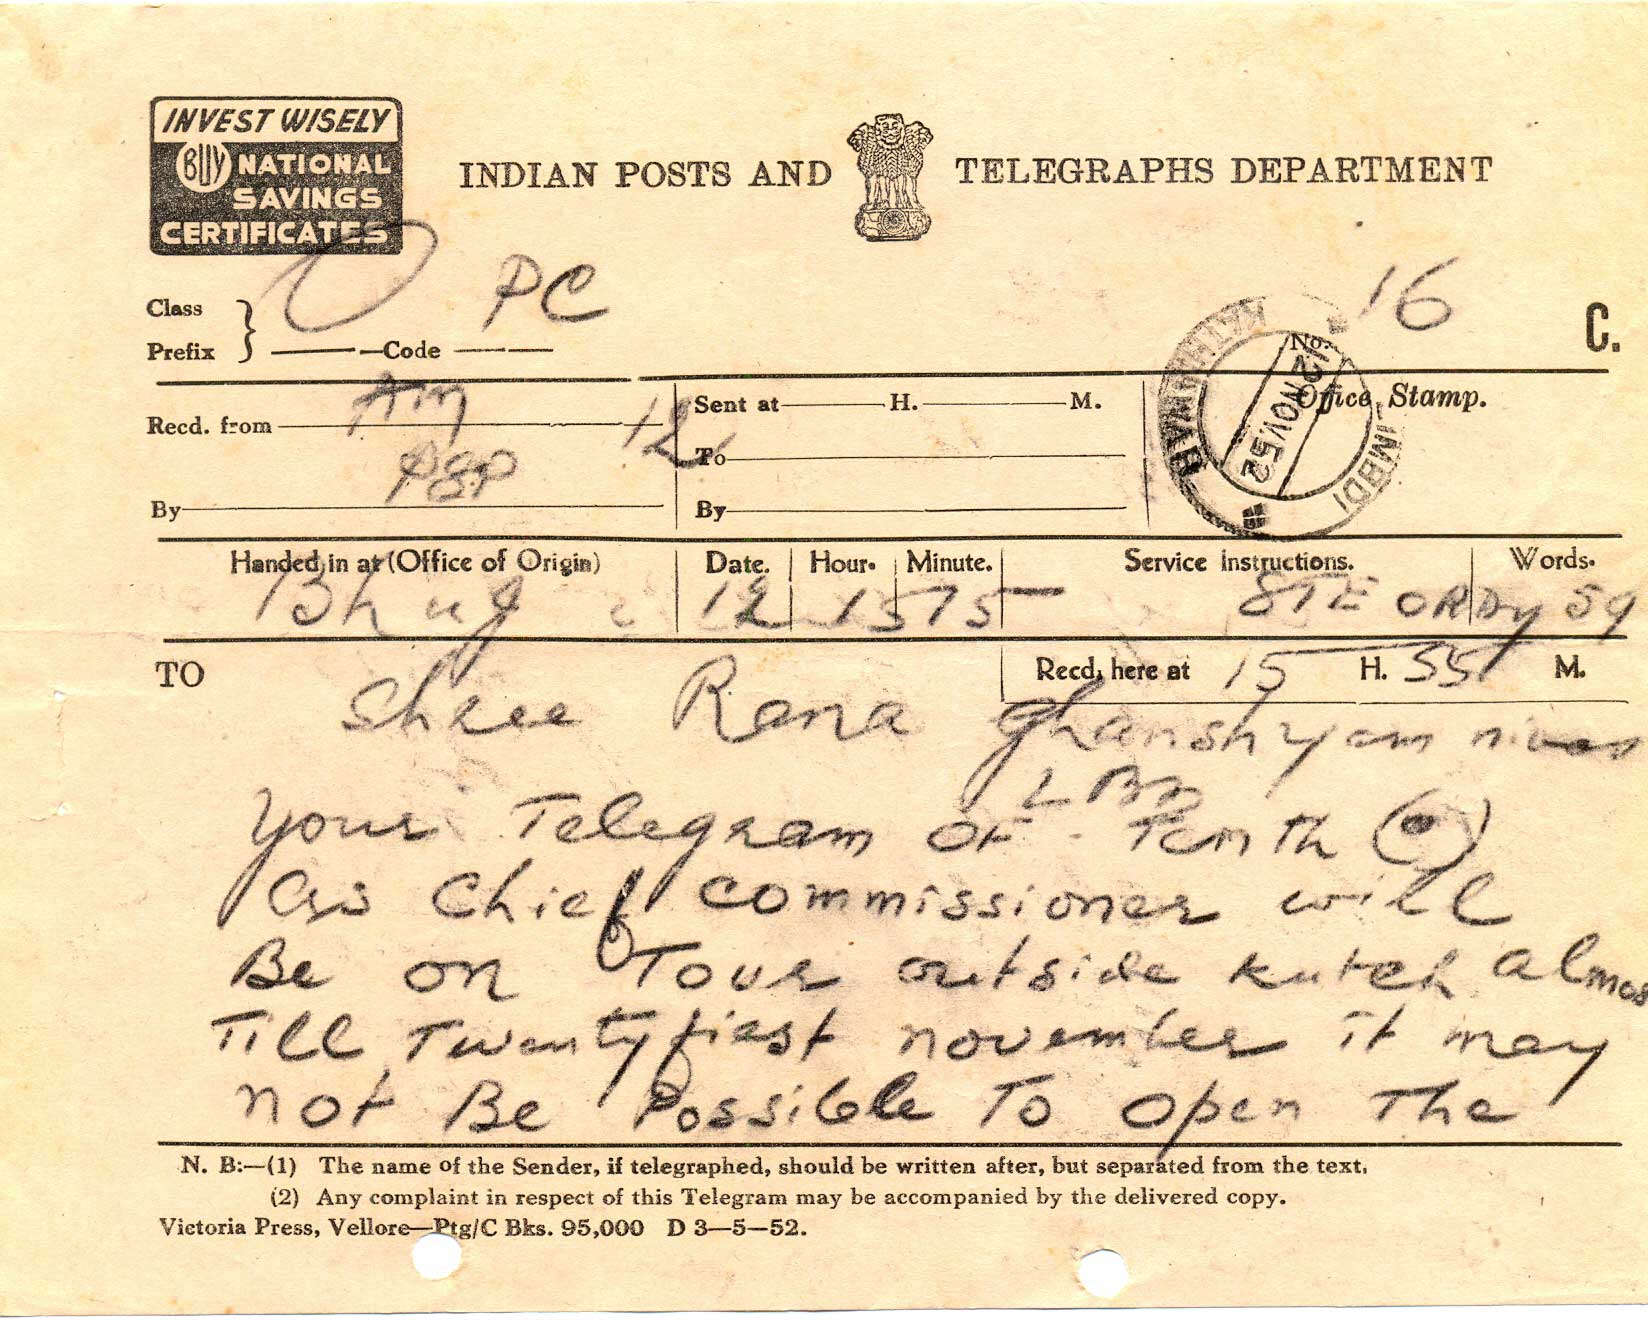 INVEST WISELY
BUY NATIONAL
SAVINGS
CERTIFICATES
INDIAN POSTS AND TELEGRAPHS DEPARTMENT
PC
16
Class
Prefix
Code
No.
C.
KATHIAWAR
LIMBDI
12 NOV. 52
Office Stamp.
Recd. from
12
Sent at H. M.
To
By
By
Handed in at (Office of Origin) Date. Hour. Minute. Service Instructions. Words.
Bhuj 12 15 15 STE ORDY 59
TO
Recd, here at 15 H. 55 M.
Shree Rana Ghanshyam nivas
LBD
Your Telegram OF Tenth (.)
As Chief commissioner will
Be on Tour outside kutch almos
Till Twentyfirst november it may
not Be Possible To open The
N. B:—(1) The name of the Sender, if telegraphed, should be written after, but separated from the text.
(2) Any complaint in respect of this Telegram may be accompanied by the delivered copy.
Victoria Press, Vellore—Ptg/C Bks. 95,000 D 3—5—52.